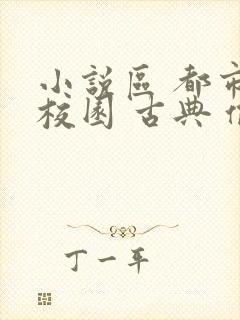 小說區 都市
校園 古典
丁一平